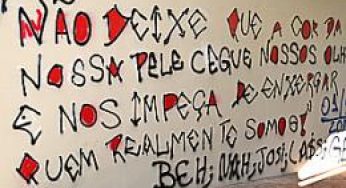 NÃO DEIXE QUE A COR DA
NOSSA PELE CEGUE NOSSOS OLH
E NOS IMPEÇA DE ENXERGAR
QUEM REALMENTE SOMOS!
BEH; NAH; JOSI; LASS;